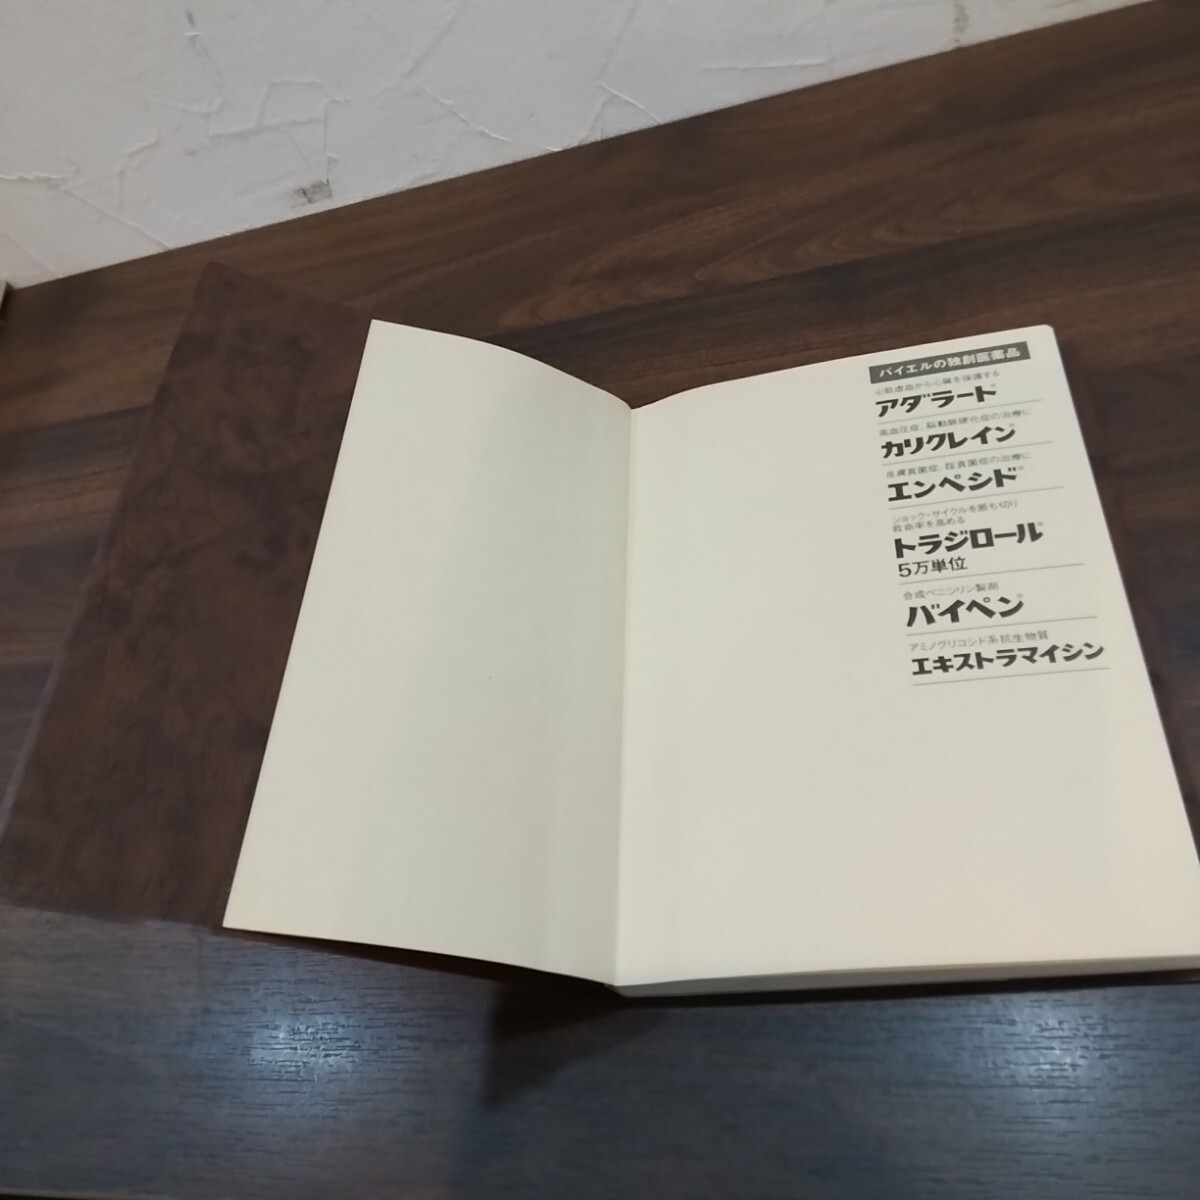 バイエルの独創医薬品
心筋虚血から心臓を保護する
アダラート®
高血圧症、脳動脈硬化症の治療に
カリクレイン®
皮膚真菌症、腟真菌症の治療に
エンペシド®
ショック・サイクルを断ち切り
救命率を高める
トラジロール®
5万単位
合成ペニシリン製剤
バイペン®
アミノグリコシド系抗生物質
エキストラマイシン